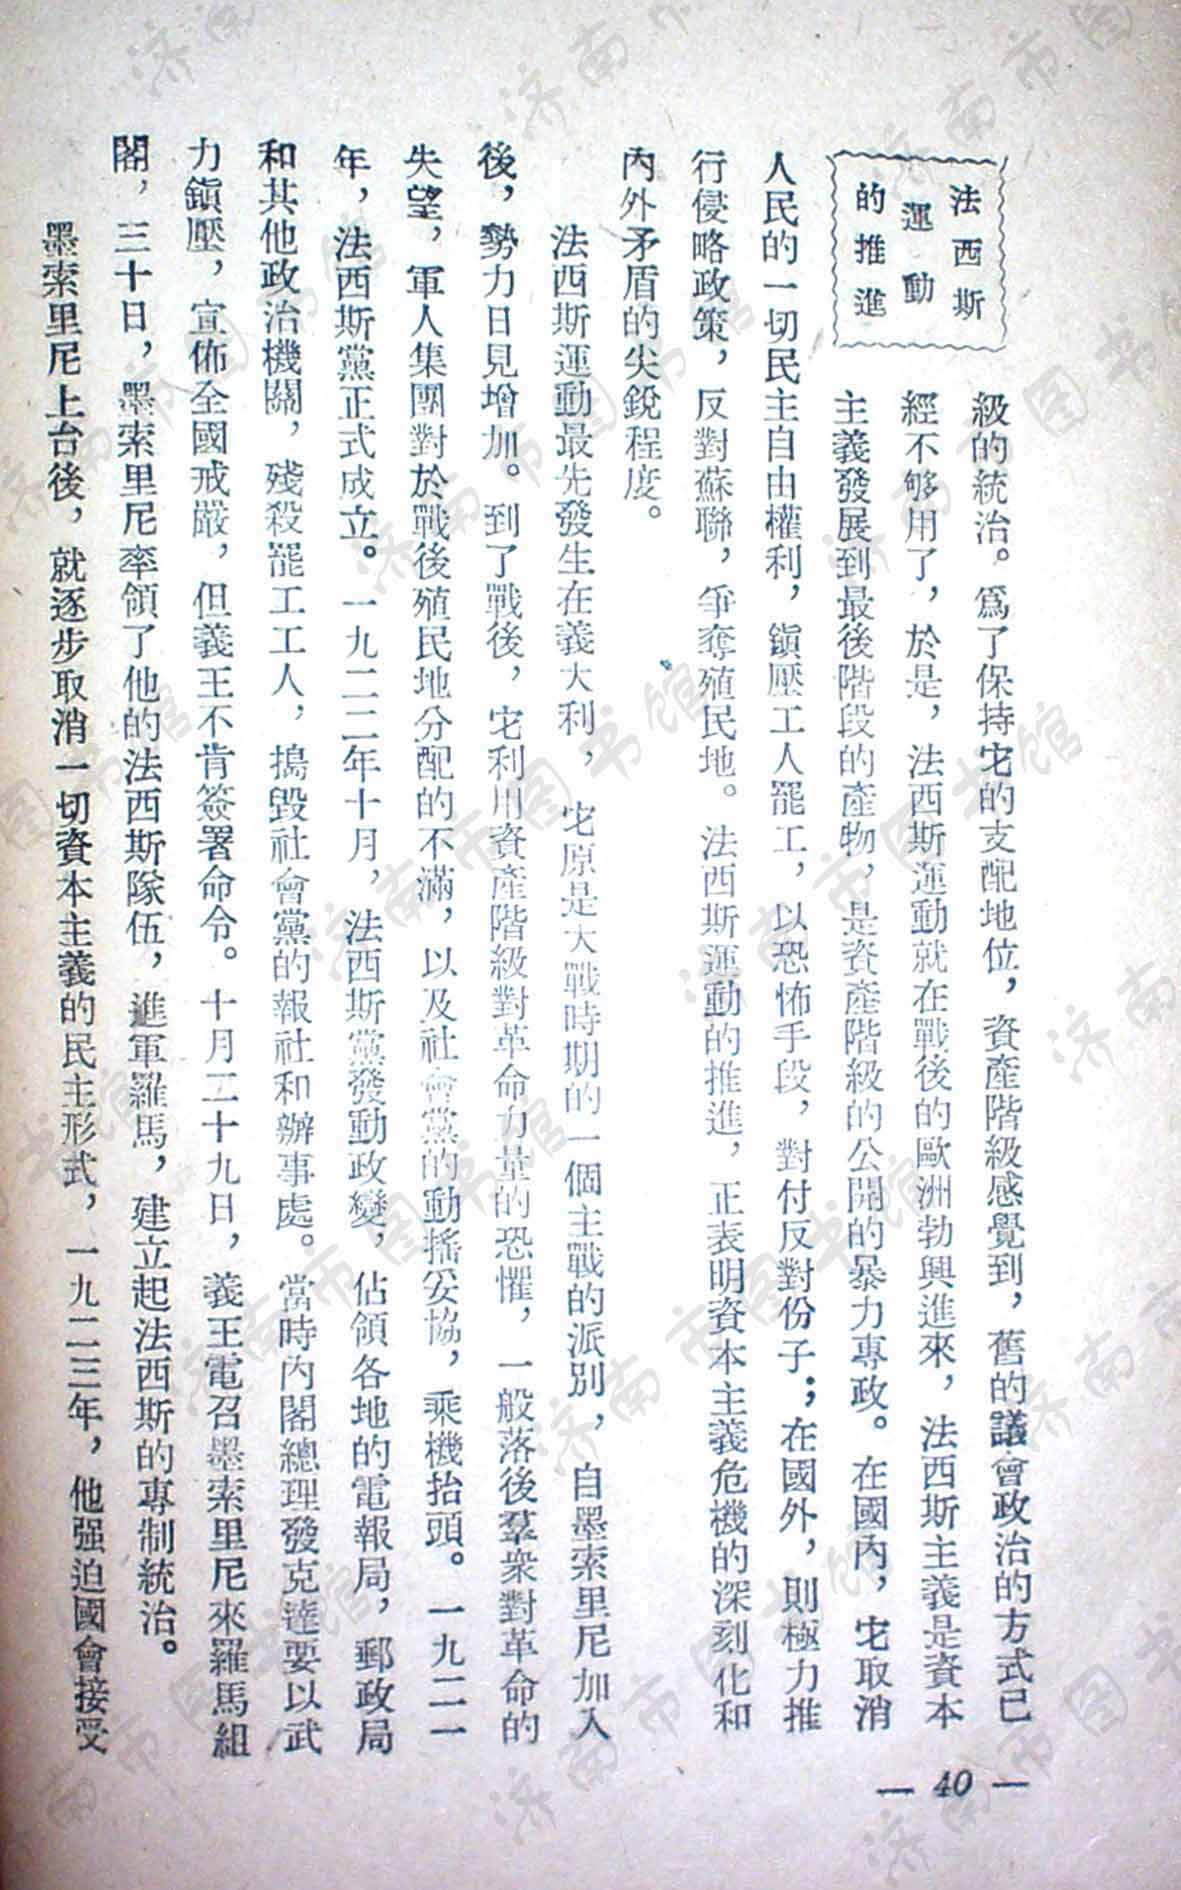 法西斯
運動
的推進
級的統治。爲了保持它的支配地位，資產階級感覺到，舊的議會政治的方式已
經不够用了，於是，法西斯運動就在戰後的歐洲勃興進來，法西斯主義是資本
主義發展到最後階段的產物，是資產階級的公開的暴力專政。在國內，它取消
人民的一切民主自由權利，鎮壓工人罷工，以恐怖手段，對付反對份子；在國外，則極力推
行侵略政策，反對蘇聯，爭奪殖民地。法西斯運動的推進，正表明資本主義危機的深刻化和
內外矛盾的尖銳程度。
法西斯運動最先發生在義大利，它原是大戰時期的一個主戰的派別，自墨索里尼加入
後，勢力日見增加。到了戰後，它利用資產階級對革命力量的恐懼，一般落後羣衆對革命的
失望，軍人集團對於戰後殖民地分配的不滿，以及社會黨的動搖妥協，乘機抬頭。一九二一
年，法西斯黨正式成立。一九二二年十月，法西斯黨發動政變，佔領各地的電報局，郵政局
和其他政治機關，殘殺罷工工人，搗毀社會黨的報社和辦事處。當時內閣總理發克達要以武
力鎮壓，宣佈全國戒嚴，但義王不肯簽署命令。十月二十九日，義王電召墨索里尼來羅馬組
閣，三十日，墨索里尼率領了他的法西斯隊伍，進軍羅馬，建立起法西斯的專制統治。
墨索里尼上台後，就逐步取消一切資本主義的民主形式，一九二三年，他强迫國會接受
— 40 —
济南市图书馆